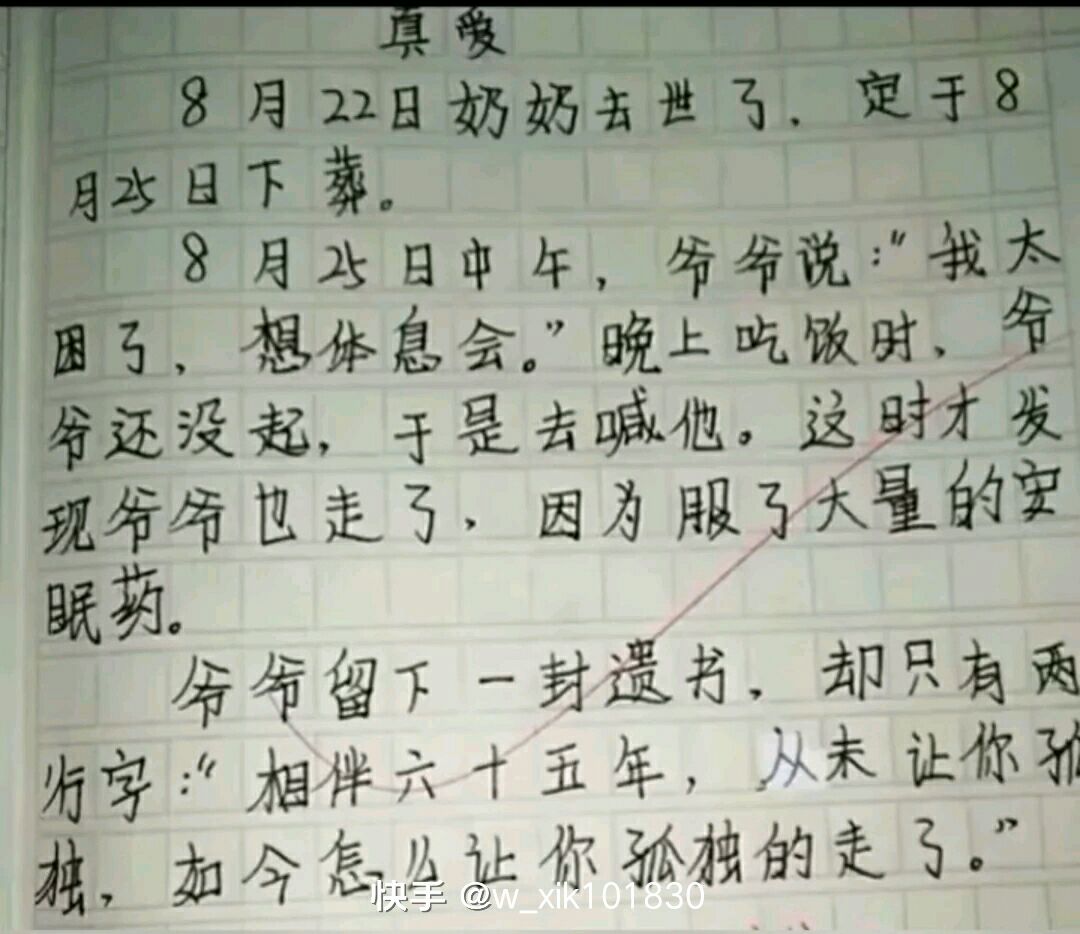 真爱
8月22日奶奶去世了．定于8
月25日下葬。
8月25日中午，爷爷说：“我太
困了，想体息会。”晚上吃饭时、爷
爷还没起，于是去喊他。这时才发
现爷爷也走了，因为服了大量的安
眠药。
爷爷留下一封遗书，却只有两
行字：“相伴六十五年，从未让你孤
独，如今怎么让你孤独的走了。”
快手 @w_xik101830